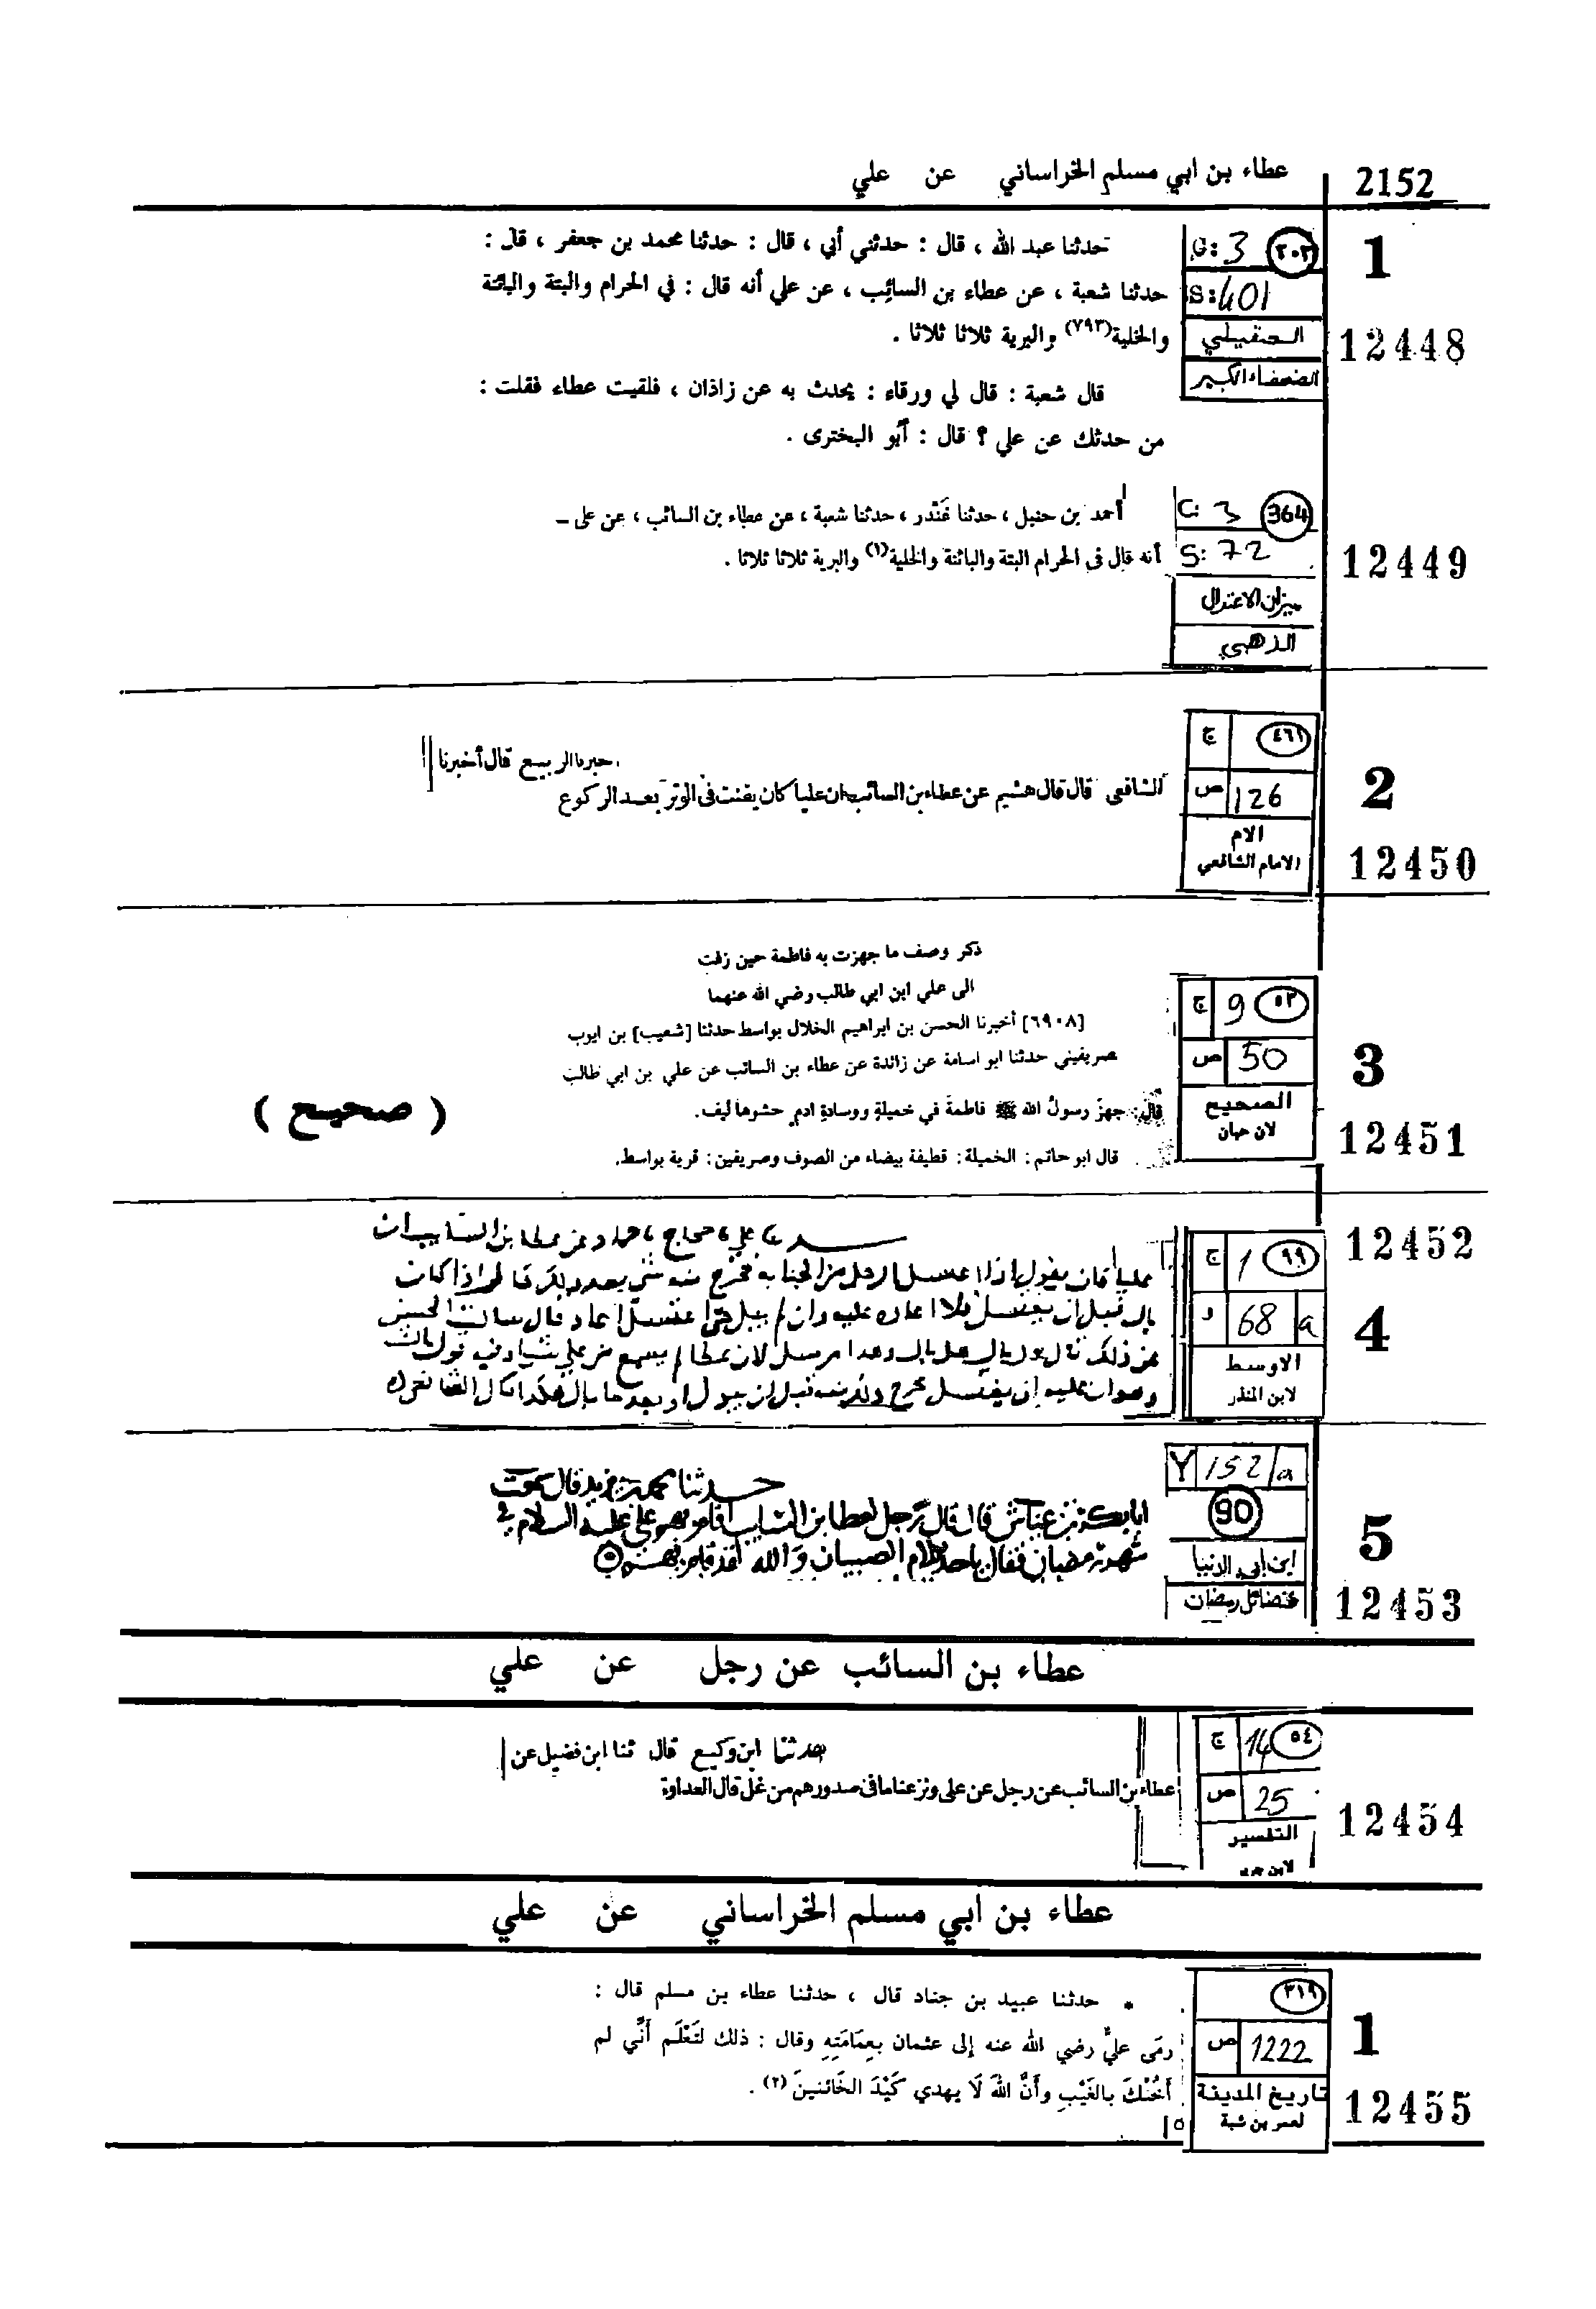 2152 عطاء بن ابي مسلم الخراساني عن علي
1
12448
G: 3 ٣٠٢
S: 401
العقيلي
الضعفاء الكبير
حدثنا عبد الله ، قال : حدثني أبي ، قال : حدثنا محمد بن جعفر ، قال :
حدثنا شعبة ، عن عطاء بن السائب ، عن علي أنه قال : في الحرام والبتة والبائنة
والخلية (٧٩٣) والبرية ثلاثا ثلاثا .
قال شعبة : قال لي ورقاء : يحدث به عن زاذان ، فلقيت عطاء فقلت :
من حدثك عن علي ؟ قال : أبو البخترى .
12449
C: 3 364
S: 72
ميزان الاعتدال
الذهبي
أحمد بن حنبل ، حدثنا غُنْدَر ، حدثنا شعبة ، عن عطاء بن السائب ، عن على ــ
أنه قال فى الحرام البتة والبائنة والخلية (١) والبرية ثلاثا ثلاثا .
2
12450
ج ٤٦١
ص 126
الام
الامام الشافعي
اخبرنا الربيع قال أخبرنا
الشافعى قال قال هشيم عن عطاء بن السائب ان عليا كان يقنت فى الوتر بعد الركوع
3
12451
ج 9 ٥٢
ص 50
الصحيح
لابن حبان
ذكر وصف ما جهزت به فاطمة حين زفت
الى علي ابن ابي طالب رضي الله عنهما
[٦٩٠٨] أخبرنا الحسن بن ابراهيم الخلال بواسط حدثنا [شعيب] بن ايوب
صريفيني حدثنا ابو اسامة عن زائدة عن عطاء بن السائب عن علي بن ابي طالب
قال: جهز رسولُ الله ﷺ فاطمةَ في خميلةٍ ووسادةِ ادمٍ حشوها ليف.
( صحيح )
قال ابو حاتم: الخميلة: قطيفة بيضاء من الصوف وصريفين: قرية بواسط.
12452
4
ج 1 ٩٩
و 68 a
الاوسط
لابن المنذر
علي حجاج حماد عن عطا بن السايب ان
عليا كان يقول اذا اغتسل الرجل من الجنابة فخرج منه شي بعد ذلك قال اذا كان
بال قبل ان يغتسل فلا اعادة عليه وان لم يبل حتى اغتسل اعاد قال سالت الحسن
عن ذلك فقال مرسل لان عطا لم يسمع من علي شيا وفيه قول ثالث
وهو ان عليه ان يغتسل
5
12453
Y 152/a
90
ابن ابي الدنيا
فضائل رمضان
حدثنا محمد بن يزيد قال سمعت
ابا بكر بن عياش قال قال رجل لعطا بن السايب اقام بهم علي عليه السلام في
شهر رمضان فقال يا احد غلام الصبيان والله لقد قام بهم
عطاء بن السائب عن رجل عن علي
12454
ج 14 ٥٤
ص 25
التفسير
لابن جرير
حدثنا ابن وكيع قال ثنا ابن فضيل عن
عطاء بن السائب عن رجل عن على ونزعنا ما فى صدورهم من غل قال العداوة
عطاء بن ابي مسلم الخراساني عن علي
1
12455
٣١٩
ص 1222
تاريخ المدينة
لعمر بن شبة
* حدثنا عبيد بن جناد قال ، حدثنا عطاء بن مسلم قال :
رمَى عليٌّ رضي الله عنه إلى عثمان بعِمَامَتِهِ وقال : ذلك لتَعْلَم أَنِّي لم
أَخُنْكَ بالغَيْبِ وأَنَّ اللهَ لَا يهدي كَيْدَ الخَائنينَ (٢) .
١٥